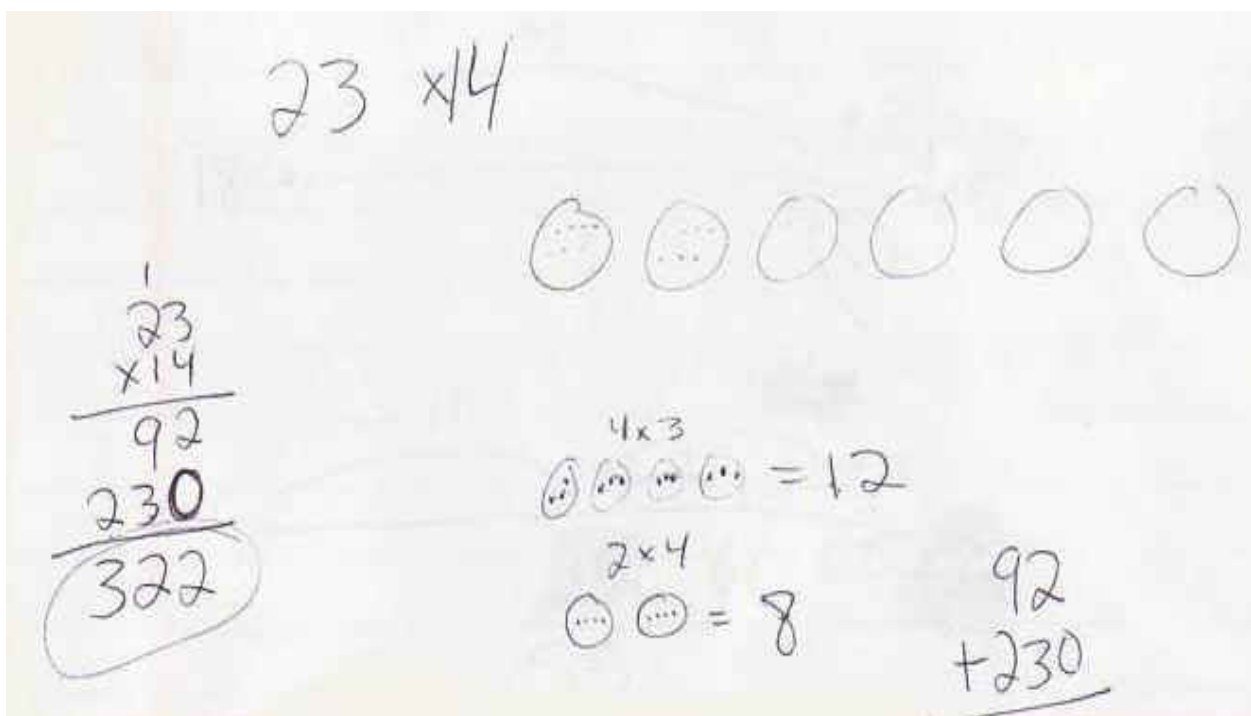 23 x14
1
23
x14
92
230
322
4x3
= 12
2x4
= 8
92
+230